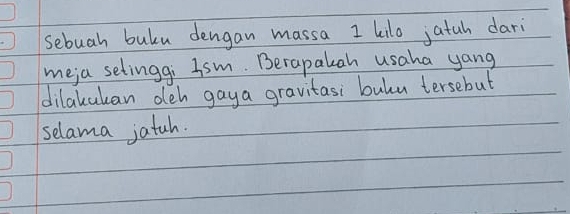 Sebuah buku dengan massa 1 kilo jatuh dari
meja setinggi 1,5m. Berapakah usaha yang
dilakukan oleh gaya gravitasi buku tersebut
selama jatuh.